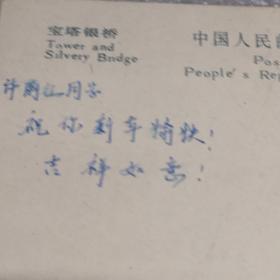 宝塔银桥
Tower and
Silvery Bridge
中国人民
Pos
People's Rep
祝你新年愉快!
吉祥如意!